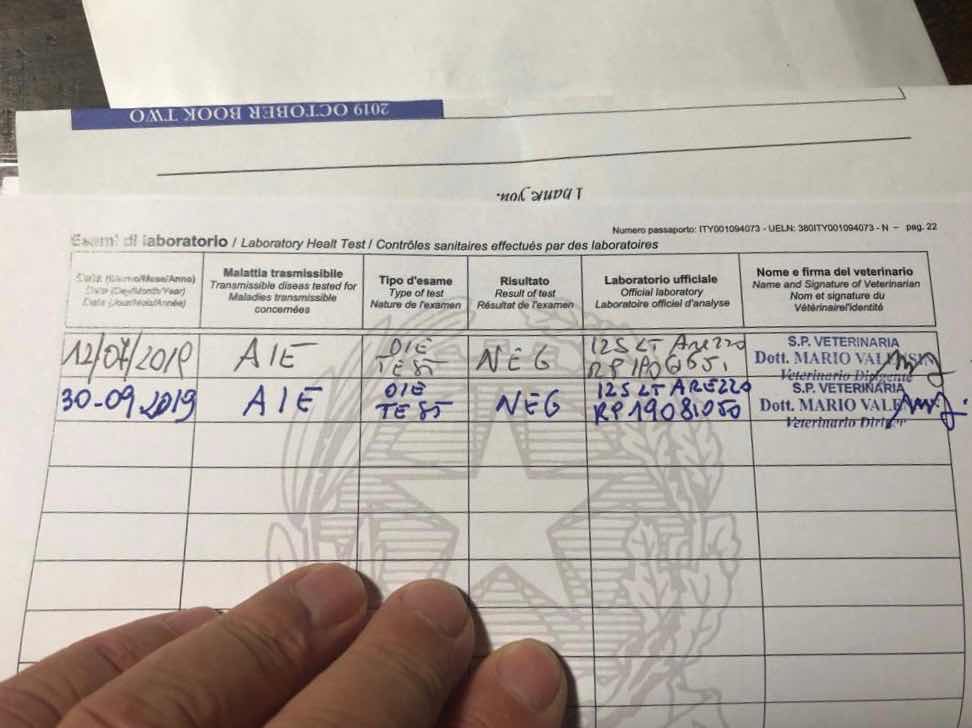 2019 OCTOBER BOOK TWO
Thank you.
Numero passaporto: ITY001094073 - UELN: 380ITY001094073 - N - pag. 22
Esami di laboratorio / Laboratory Healt Test / Contrôles sanitaires effectués par des laboratoires
Data (Giorno/Mese/Anno)
Date (Day/Month/Year)
Date (Jour/Mois/Année)
Malattia trasmissibile
Transmissible diseas tested for
Maladies transmissible
concernées
Tipo d'esame
Type of test
Nature de l'examen
Risultato
Result of test
Résultat de l'examen
Laboratorio ufficiale
Official laboratory
Laboratoire officiel d'analyse
Nome e firma del veterinario
Name and Signature of Veterinarian
Nom et signature du
Vétérinaire/identité
12/07/2019
AIE
OIE
TEST
NEG
IZS LT Arezzo
S.P. VETERINARIA
Dott. MARIO
Veterinario Dirigente
30-09-2019
AIE
OIE
TEST
NEG
IZS LT AREZZO
RP19081050
S.P. VETERINARIA
Dott. MARIO
Veterinario